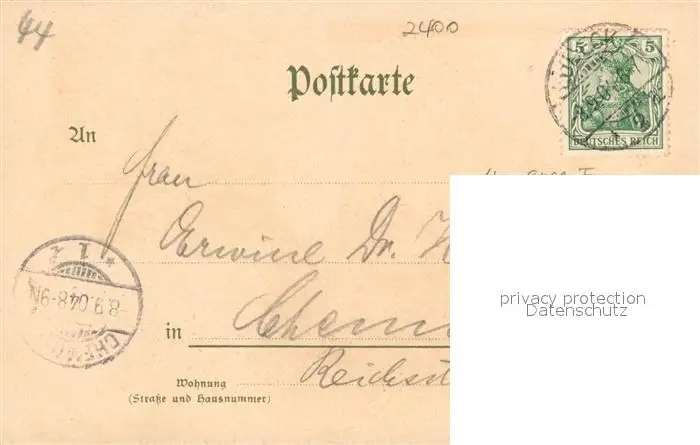 44
2400
5 5
LÜBECK
DEUTSCHES REICH
Postkarte
An
Frau
Erwine Dr. H
in Chem
Reichsst
Wohnung
(Straße und Hausnummer)
* 1 z
8.9.04.8-9N
CHEMN
privacy protection
Datenschutz